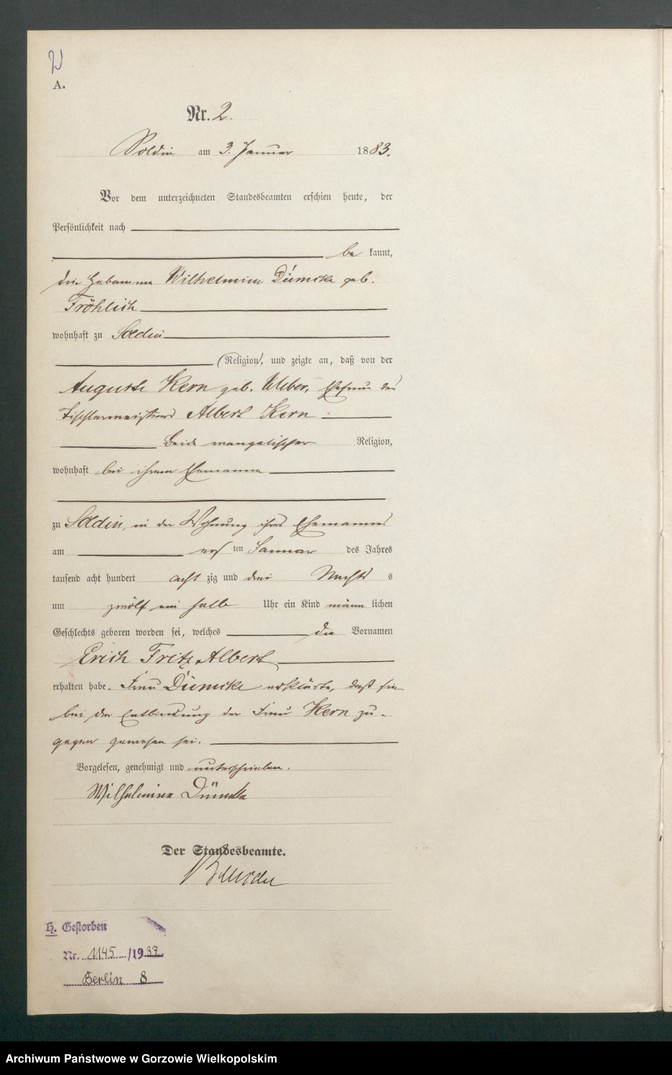 2
A.
Nr. 2.
Soldin am 3. Januar 1883.
Vor dem unterzeichneten Standesbeamten erschien heute, der
Persönlichkeit nach
be kannt,
die Hebamme Wilhelmine Dümcke geb.
Fröhlich
wohnhaft zu Soldin
(Religion), und zeigte an, daß von der
Auguste Kern geb. Weber, Ehefrau des
Tischlermeisters Albert Kern
beide evangelischer Religion,
wohnhaft bei ihrem Ehemanne
zu Soldin, in der Wohnung ihres Ehemannes
am ersten Januar des Jahres
tausend acht hundert acht zig und drei Nachts
um zwölf ein halb Uhr ein Kind männ lichen
Geschlechts geboren worden sei, welches die Vornamen
Erich Fritz Albert
erhalten habe. Frau Dümcke erklärte, daß sie
bei der Entbindung der Frau Kern zu-
gegen gewesen sei.
Vorgelesen, genehmigt und unterschrieben.
Wilhelmine Dümcke
Der Standesbeamte.
H. Gestorben
Nr. 1145 /1937
Berlin 8
Archiwum Państwowe w Gorzowie Wielkopolskim